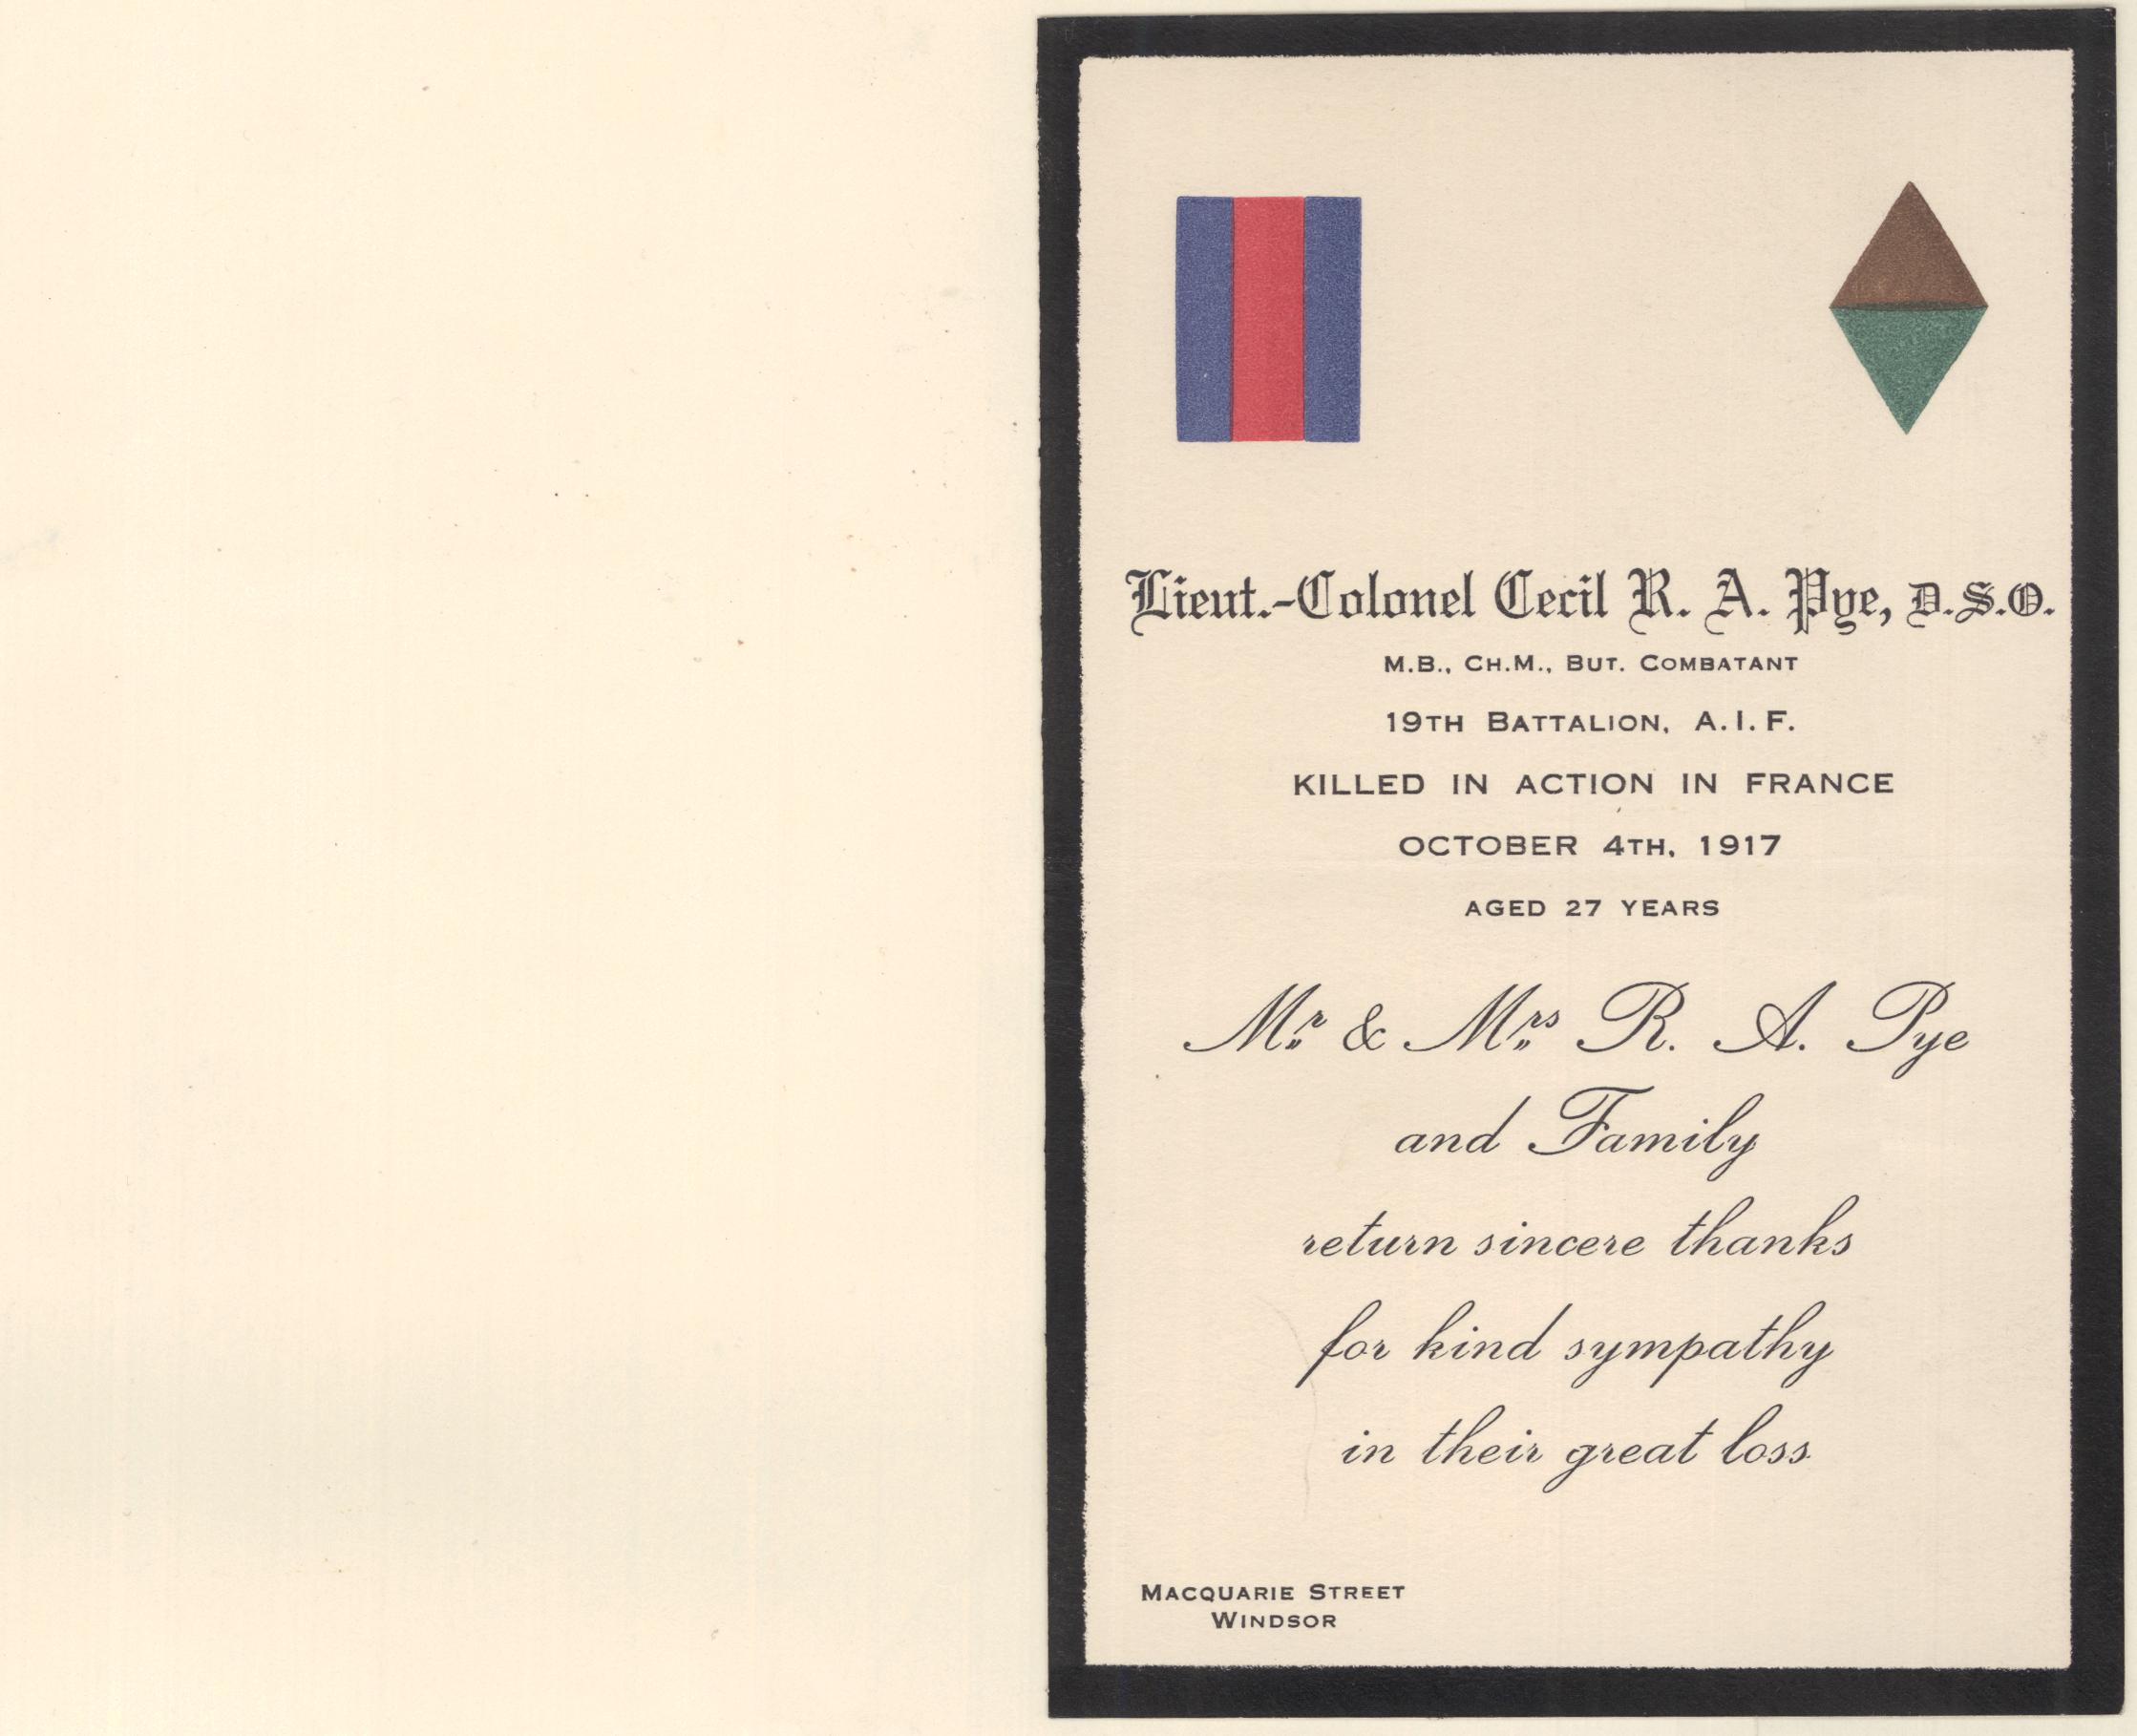 Lieut.-Colonel Cecil R. A. Pye, D.S.O.
M.B., CH.M., BUT. COMBATANT
19TH BATTALION, A.I.F.
KILLED IN ACTION IN FRANCE
OCTOBER 4TH, 1917
AGED 27 YEARS
Mr & Mrs R. A. Pye
and Family
return sincere thanks
for kind sympathy
in their great loss
MACQUARIE STREET
WINDSOR